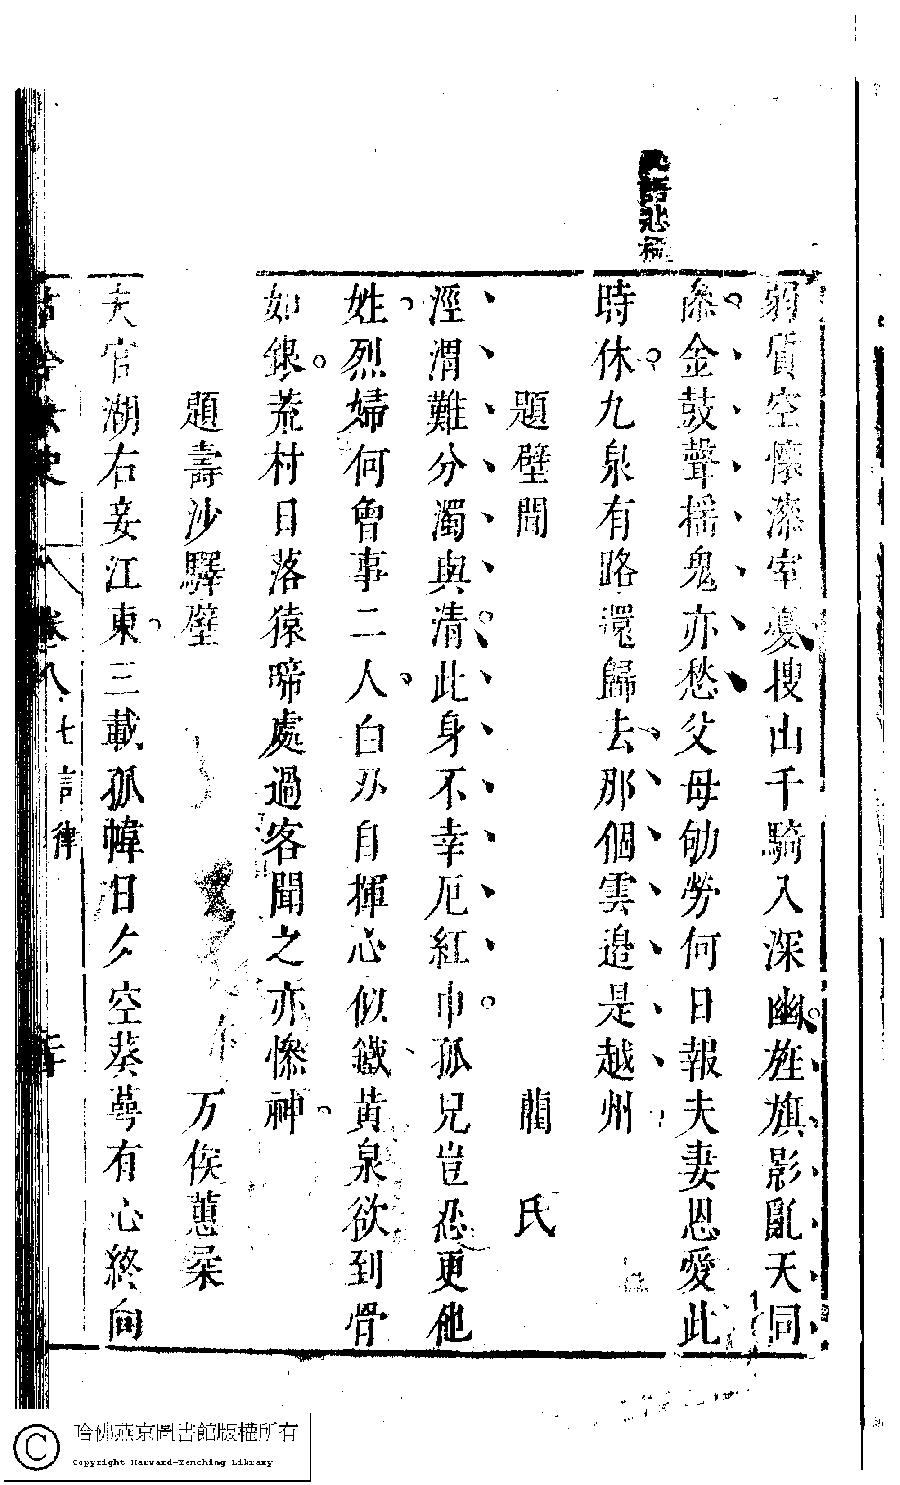 語悲
弱質空懷漆室憂搜山千騎入深幽旌旗影亂天同
慘金鼓聲搖鬼亦愁父母劬勞何日報夫妻恩愛此
時休九泉有路還歸去那個雲邉是越州
題壁間
藺氏
涇渭難分濁與清此身不幸厄紅巾孤兒豈忍更他
姓烈婦何曾事二人白刃自揮心似鐵黃泉欲到骨
如銀荒村日落猿啼處過客聞之亦慘神
題壽沙驛壁
万俟蕙柔
大官湖右妾江東三載孤幃日夕空葵藿有心終向
卷八
七言律
哈佛燕京圖書館版權所有
Copyright Harvard-Yenching Library